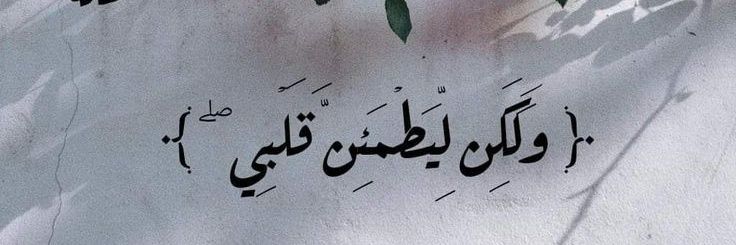 ﴿ وَلَٰكِن لِّيَطْمَئِنَّ قَلْبِي ۖ ﴾